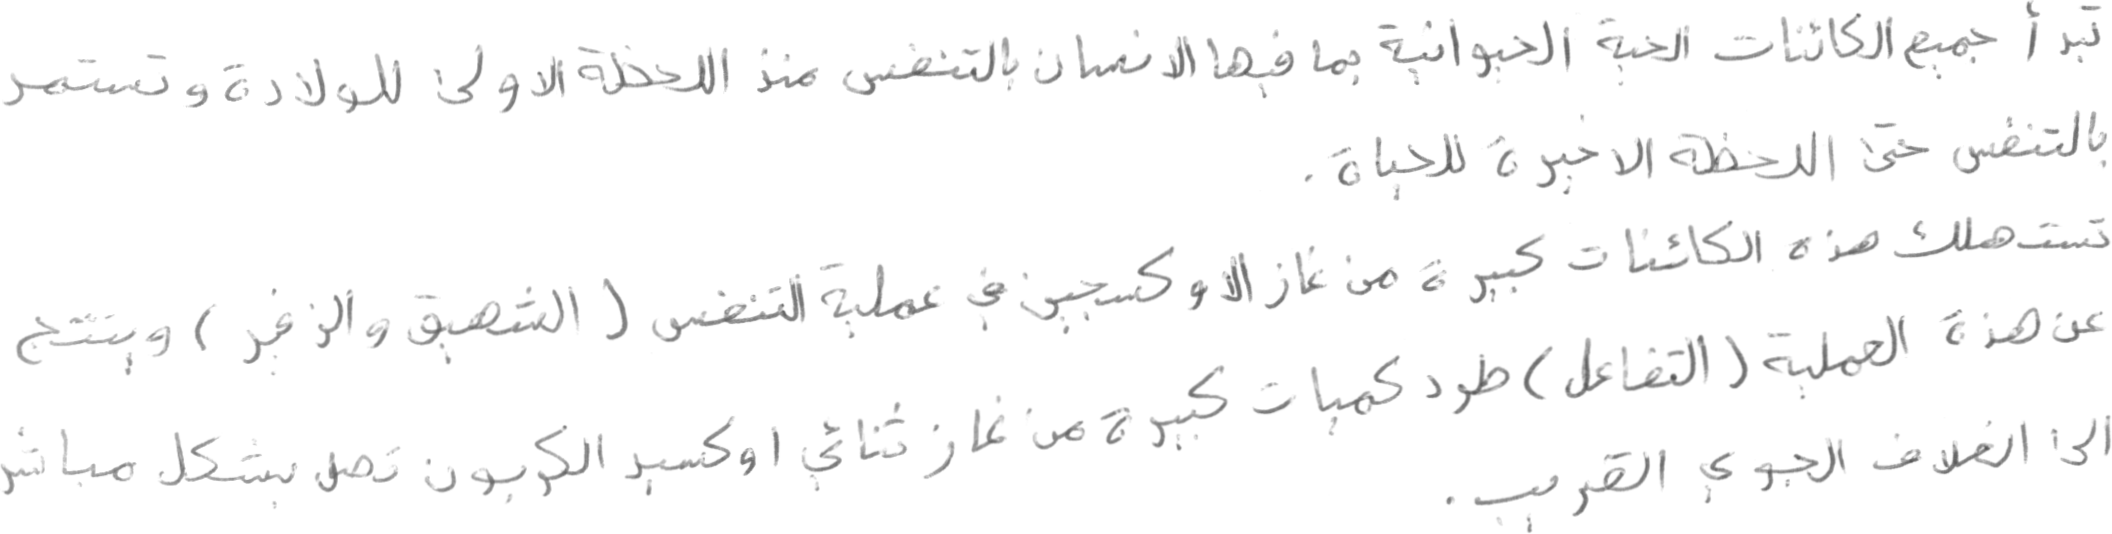 تبدأ جميع الكائنات الحية الحيوانية بما فيها الانسان بالتنفس منذ اللحظة الاولى للولادة وتستمر
بالتنفس حتى اللحظة الاخيرة للحياة .
تستهلك هذه الكائنات كبيرة من غاز الاوكسجين في عملية التنفس ( الشهيق والزفير ) وينتج
عن هذة العملية ( التفاعل ) طرد كميات كبيرة من غاز ثنائي اوكسيد الكربون تصل بشكل مباشر
الى الغلاف الجوي القريب .